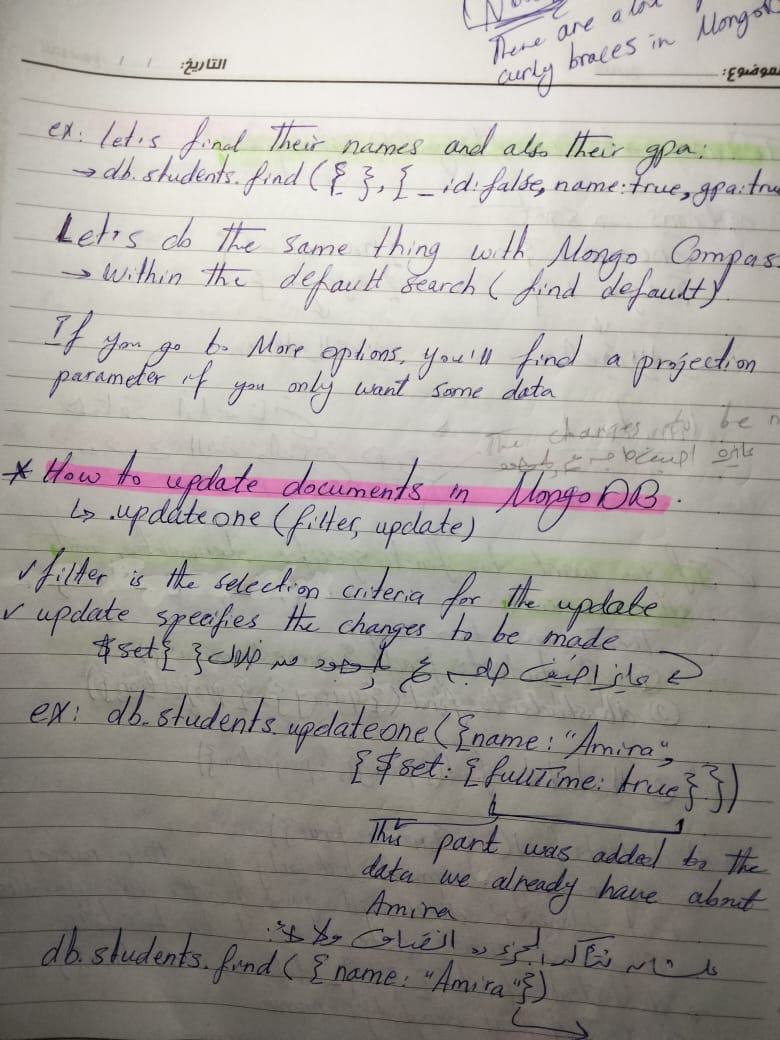 There are a lot
curly braces in Mongo
التاريخ: / /
الموضوع:
ex: let's find their names and also their gpa:
→ db.students.find({ }, {_id:false, name:true, gpa:tru
Let's do the same thing with Mongo Compas
→ Within the default search (find default)
If you go to More options, you'll find a projection
parameter if you only want some data
The changes to be
* How to update documents in MongoDB.
↳ .updateone (filter, update)
✓ filter is the selection criteria for the update
✓ update specifies the changes to be made
عايز اضيف حاجة ع الموجود من خلال $set{ }
ex: db.students.updateone({name: "Amira",
{$set: {fullTime: true}})
This part was added to the
data we already have about
Amira
علشان نتأكد الجزء ده اتضاف ولا لا:
db.students.find({name: "Amira"})